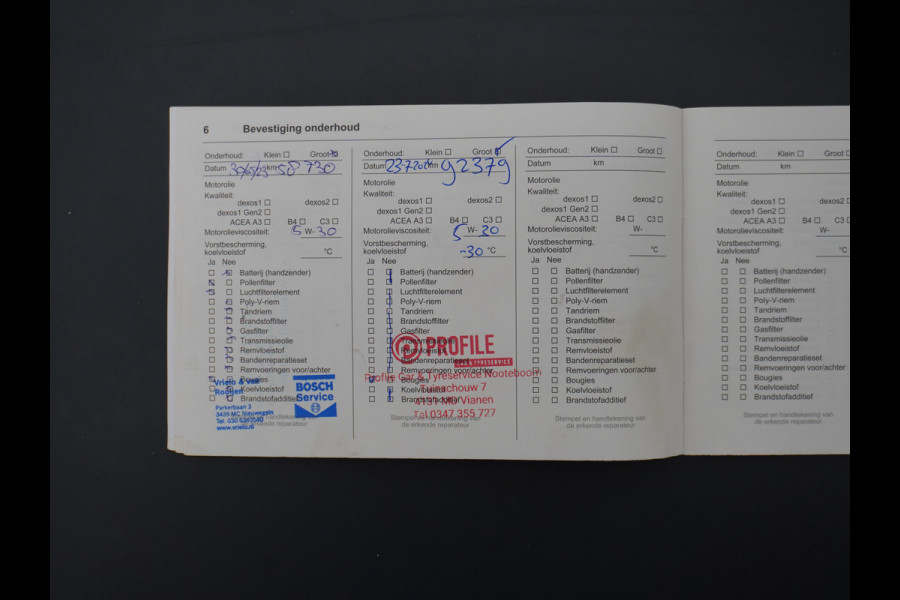 6 Bevestiging onderhoud
Onderhoud: Klein ☐ Groot ☒
Datum 30/5/23 km 58 730
Motorolie
Kwaliteit:
dexos1 ☐ dexos2 ☐
dexos1 Gen2 ☐
ACEA A3 ☐ B4 ☐ C3 ☐
Motorolieviscositeit: 5 W- 30
Vorstbescherming,
koelvloeistof °C
Ja Nee
Batterij (handzender)
Pollenfilter
Luchtfilterelement
Poly-V-riem
Tandriem
Brandstoffilter
Gasfilter
Transmissieolie
Remvloeistof
Bandenreparatieset
Remvoeringen voor/achter
Bougies
Koelvloeistof
Brandstofadditief
BOSCH
Service
Parkerbaan 3
3439 MC Nieuwegein
Onderhoud: Klein ☐ Groot ☒
Datum 23-7-2024 km 92379
Motorolie
Kwaliteit:
dexos1 ☐ dexos2 ☐
dexos1 Gen2 ☐
ACEA A3 ☐ B4 ☐ C3 ☐
Motorolieviscositeit: 5 W- 30
Vorstbescherming,
koelvloeistof -30 °C
Ja Nee
Batterij (handzender)
Pollenfilter
Luchtfilterelement
Poly-V-riem
Tandriem
Brandstoffilter
Gasfilter
Transmissieolie
Remvloeistof
Bandenreparatieset
Remvoeringen voor/achter
Bougies
Koelvloeistof
Brandstofadditief
PROFILE
CAR & TYRESERVICE
Profile Car & Tyreservice Nooteboom
Tuinschouw 7
4131 MD Vianen
Tel 0347 355 727
Stempel en handtekening van
de erkende reparateur
Onderhoud: Klein ☐ Groot ☐
Datum km
Motorolie
Kwaliteit:
dexos1 ☐ dexos2 ☐
dexos1 Gen2 ☐
ACEA A3 ☐ B4 ☐ C3 ☐
Motorolieviscositeit: W-
Vorstbescherming,
koelvloeistof °C
Ja Nee
Batterij (handzender)
Pollenfilter
Luchtfilterelement
Poly-V-riem
Tandriem
Brandstoffilter
Gasfilter
Transmissieolie
Remvloeistof
Bandenreparatieset
Remvoeringen voor/achter
Bougies
Koelvloeistof
Brandstofadditief
Stempel en handtekening van
de erkende reparateur
Onderhoud: Klein ☐ Groot
Datum km
Motorolie
Kwaliteit:
dexos1 ☐ dexos2
dexos1 Gen2 ☐
ACEA A3 ☐ B4 ☐ C3
Motorolieviscositeit: W-
Vorstbescherming,
koelvloeistof °C
Ja Nee
Batterij (handzender)
Pollenfilter
Luchtfilterelement
Poly-V-riem
Tandriem
Brandstoffilter
Gasfilter
Transmissieolie
Remvloeistof
Bandenreparatieset
Remvoeringen voor/achter
Bougies
Koelvloeistof
Brandstofadditief
Stempel en handtekening van
de erkende reparateur